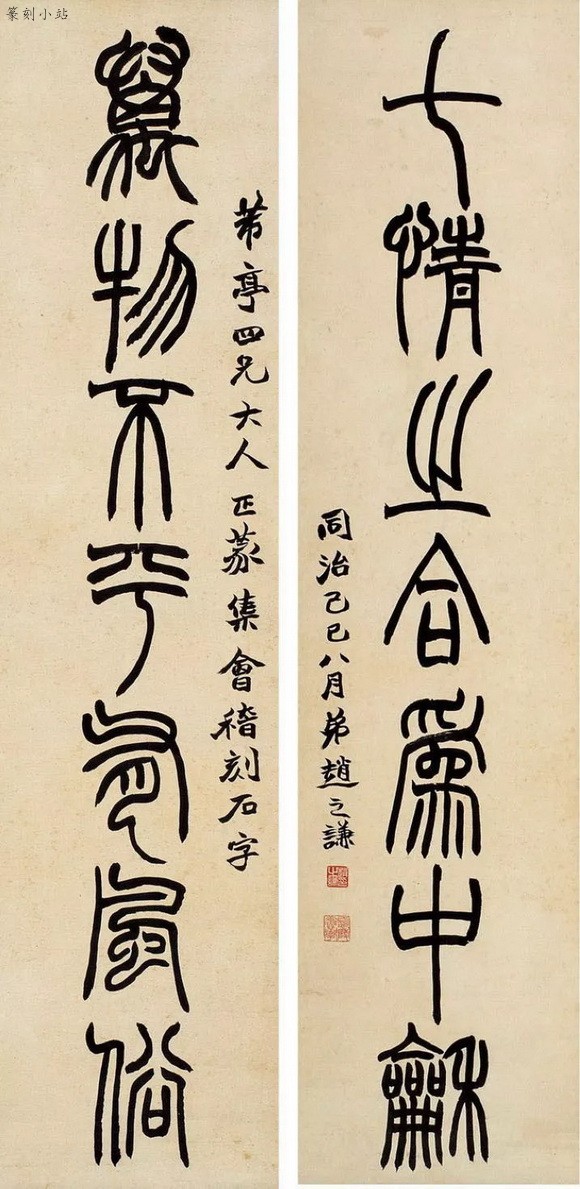 篆刻小站
七情之合為中龢
萬物不平風俗
芾亭四兄大人正篆集會稽刻石字
同治己巳八月弟趙之謙